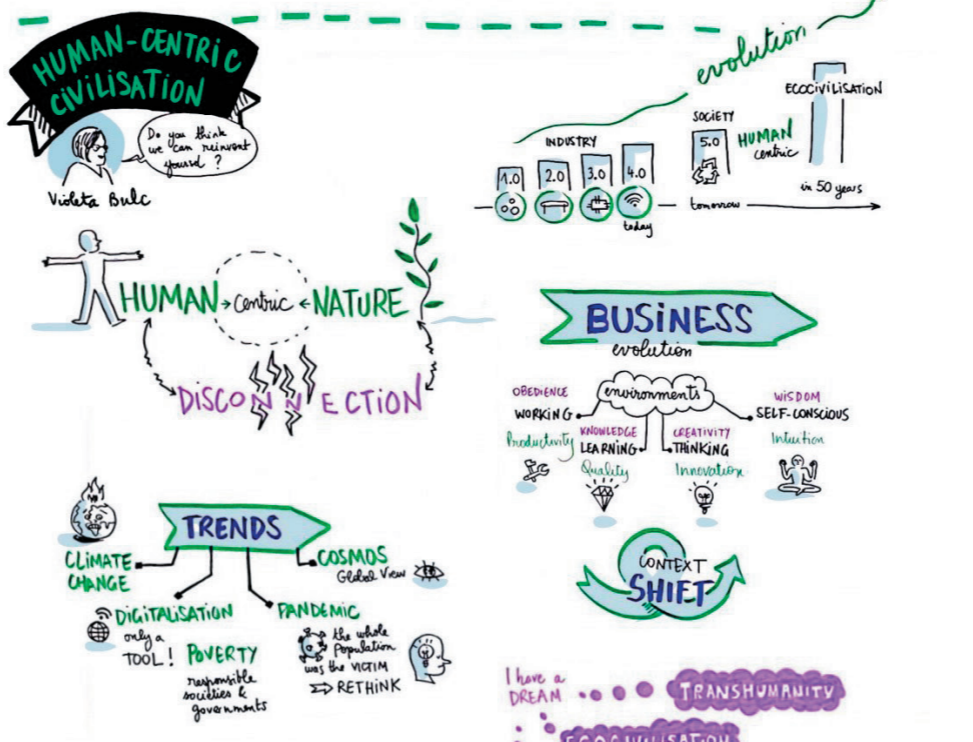 HUMAN-CENTRIC
CIVILISATION
Do you think
we can reinvent
yoursel ?
Violeta Bulc
evolution
INDUSTRY
1.0
2.0
3.0
4.0
today
SOCIETY
5.0
tomorrow
HUMAN
centric
ECOCIVILISATION
in 50 years
HUMAN centric NATURE
DISCONNECTION
BUSINESS
evolution
environments
OBEDIENCE
WORKING
Productivity
KNOWLEDGE
LEARNING
Quality
CREATIVITY
THINKING
Innovation
WISDOM
SELF-CONSCIOUS
Intuition
TRENDS
CLIMATE
CHANGE
DIGITALISATION
only a
TOOL!
POVERTY
responsible
societies &
governments
PANDEMIC
the whole
Population
was the VICTIM
⇒ RETHINK
COSMOS
Global View
CONTEXT
SHIFT
I have a
DREAM
TRANSHUMANITY
ECOCIVILISATION